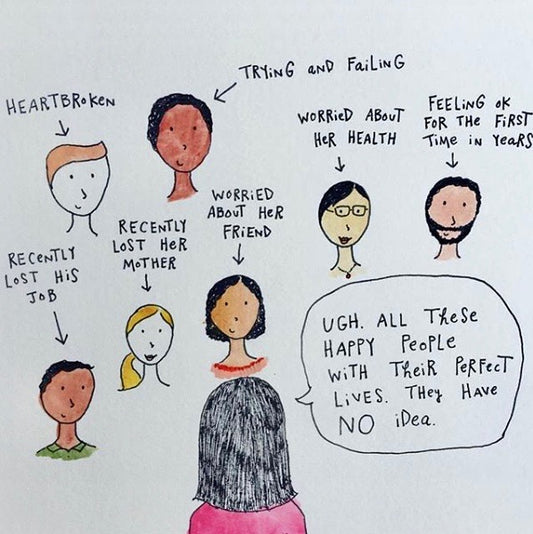 TRYING and FaiLiNG
HEARTBROKEN
WORRiED ABOUT
HER HEALTH
FEELING OK
FOR THE FIRST
TiME iN YeaRS
WORRiED
ABOUT HeR
FRiEND
RECENTLY
LOST HER
MOTHER
RECENTLY
LOST HiS
JOB
UGH. ALL THeSe
HAPPY PeoPLe
WiTH THeiR PeRFeCT
LiVES. THey HAVe
NO iDea.